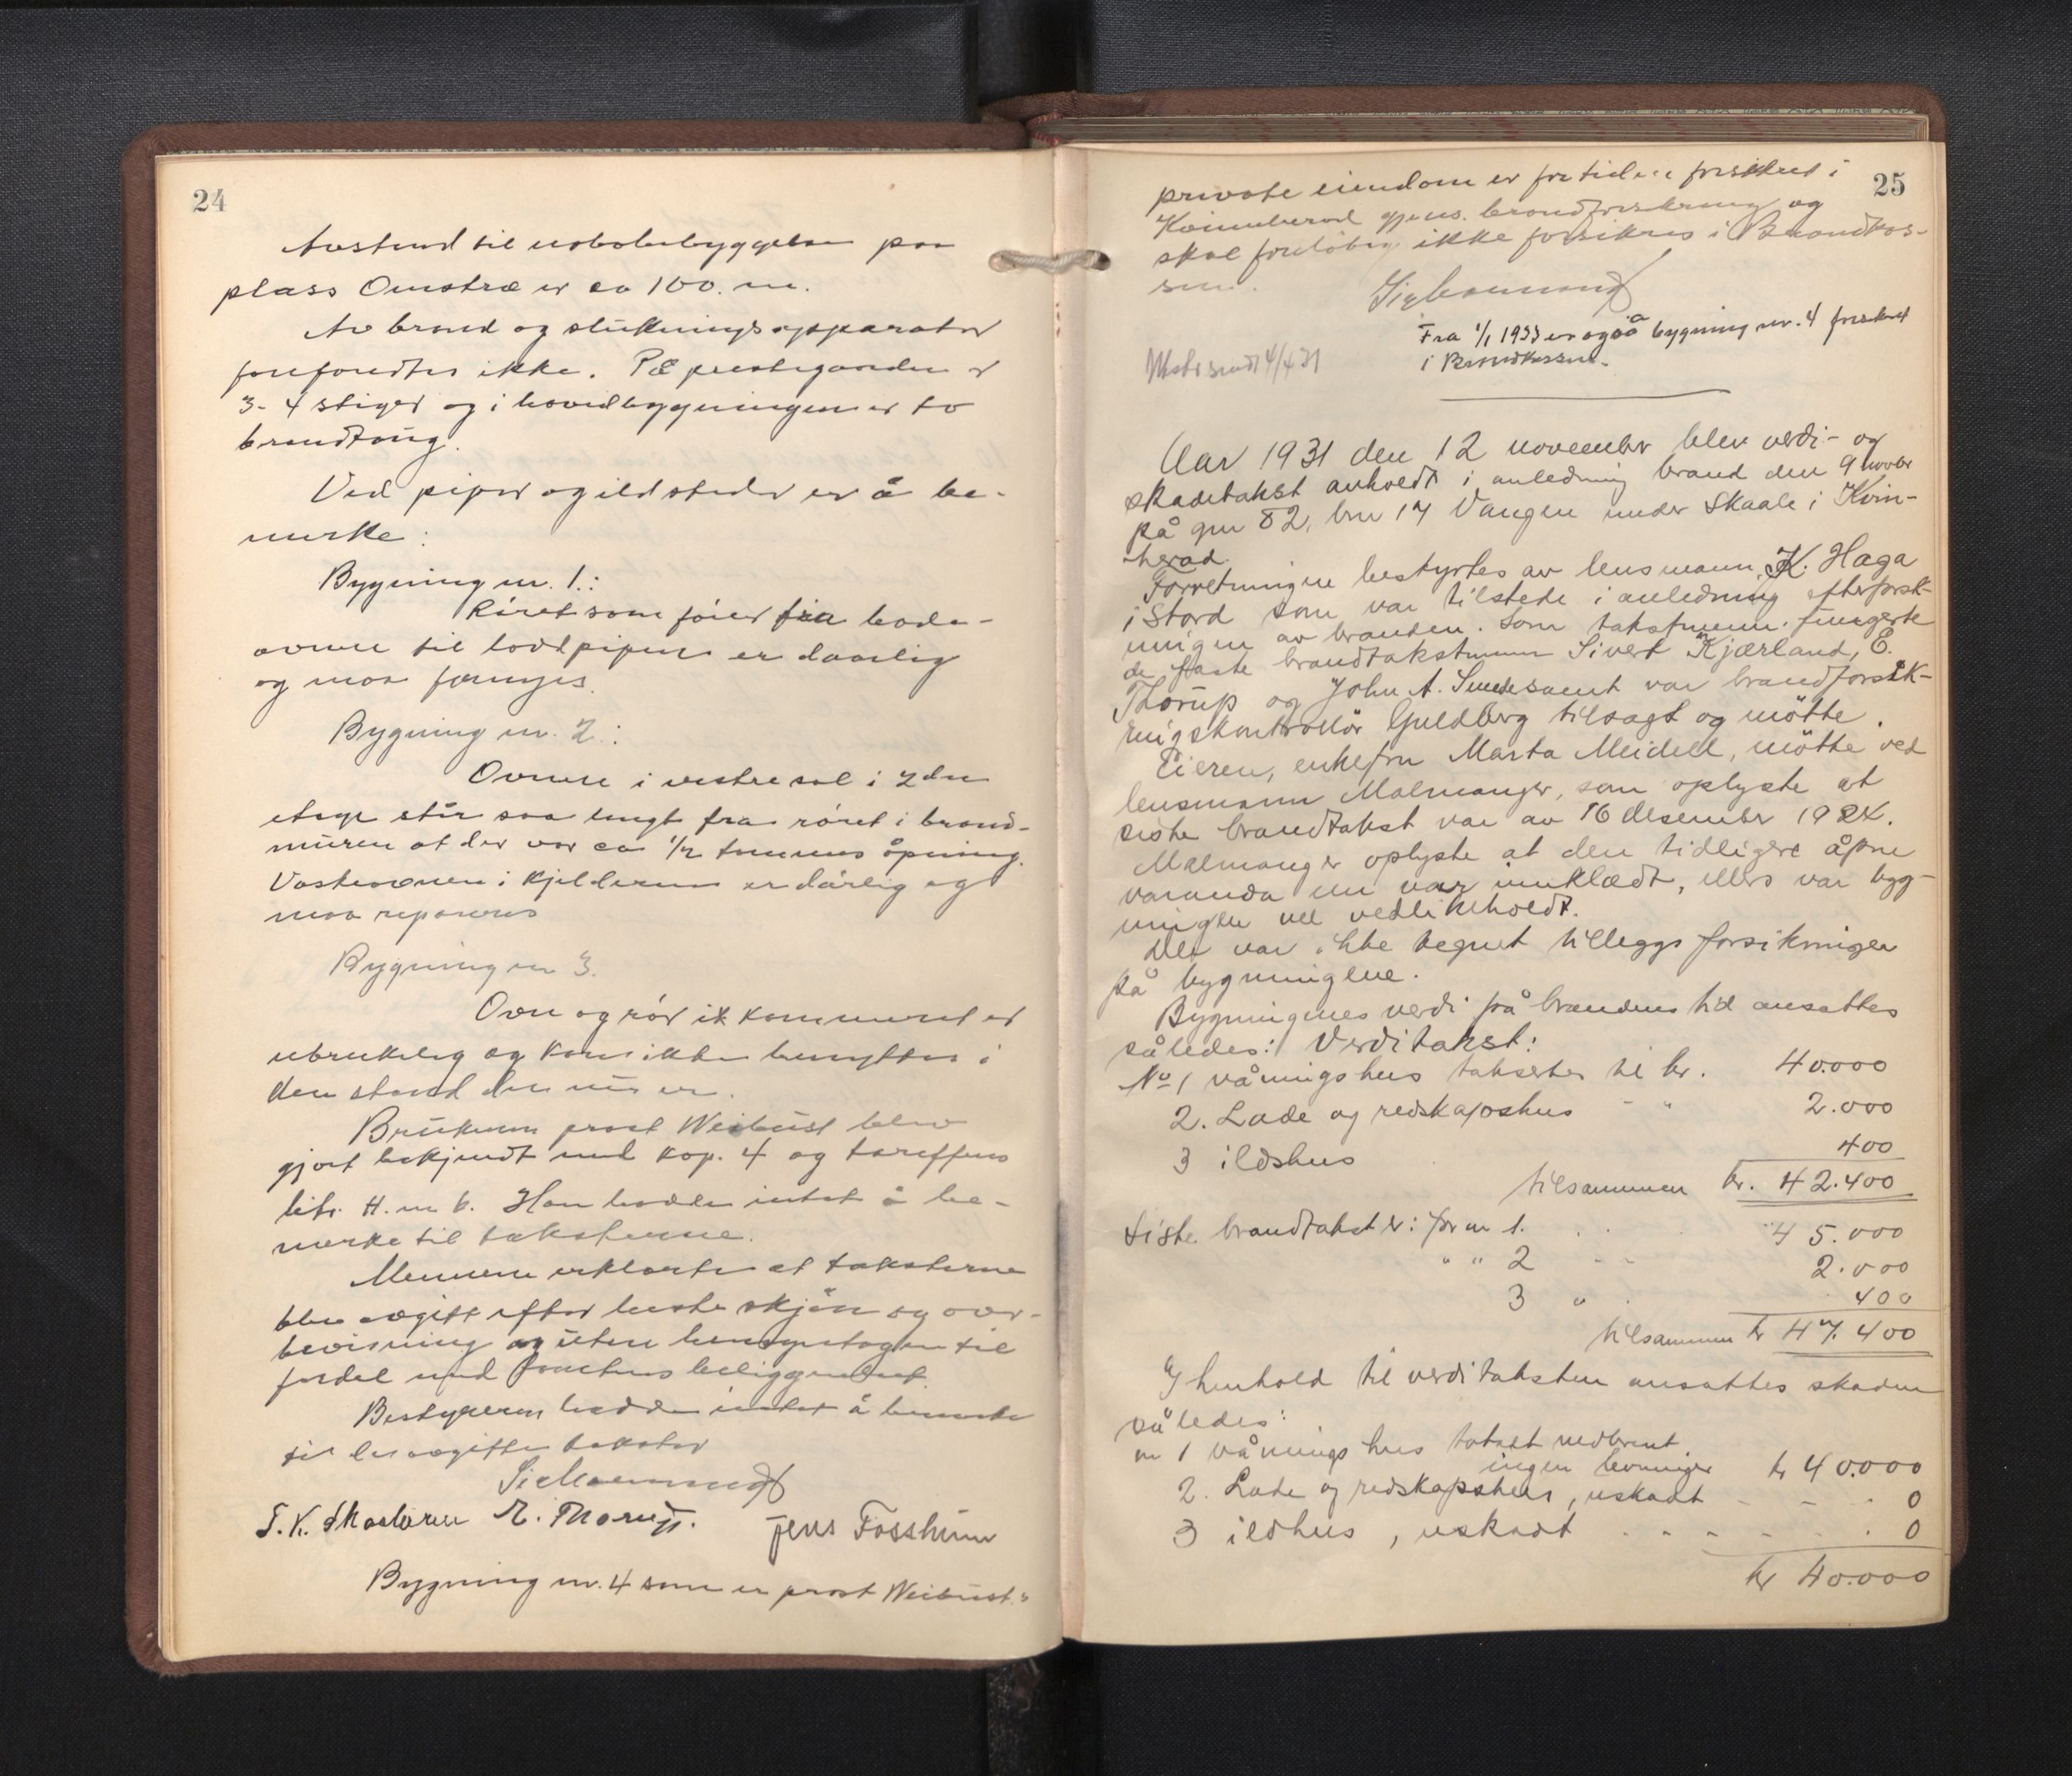 24
Avstand til nabobebyggelsen paa
plass Omstræ er ca 100. m.
Av brand og slukningsapparater
forefandtes ikke. På prestegarden er
3-4 stiger og i hovedbygningen er to
brandtaug.
Ved piper og ildsteder er å be-
merke:
Bygning nr. 1.:
Röret som förer fra bade-
ovnen til lodpipen er daarlig
og maa fornyes.
Bygning nr. 2.:
Ovnen i vestre sal i 2den
etage står saa langt fra röret i brand-
müren at der var ca 1/2 tommes åpning.
Vaskeovnen i kjelderen er dårlig og
maa repareres
Bygning nr 3.
Ovn og rör i kammerset er
ubrukelig og kan ikke benyttes i
den stand den nu er.
Brukeren prost Weibüst blev
gjort bekjendt med kap. 4 og tariffens
litr. H. nr 6. Han hadde intet å be-
merke til taksterne.
Mennene erklærte at taksterne
blev avgitt efter beste skjön og over-
bevisning og uten hensyntagen til
fordel ved tomtens beliggenhet.
Bestyreren hadde intet å bemerke
til de avgitte takster
E. Thorup. Jens Fosshün
Bygning nr. 4 som er prost Weibüst's
25
private eiendom er for tiden forsikret i
Kvinnherad gjens. brandforsikring og
skal foreløbig ikke forsikres i Brandkas-
sen.
Fra 1/1 1933 er også bygning nr. 4 forsikret
i Brandkassen.
Utskr sendt 4/4 31
Aar 1931 den 12 november blev verdi- og
skadetakst avholdt i anledning brand den 9 novbr
på gnr 82, bnr 17 Vangen under Skaale i Kvin-
herad.
Forretningen bestyrtes av lensmann K. Haga
i Stord som var tilstede i anledning efterforsk-
ningen av branden. Som takstmenn fungerte
de faste brandtakstmenn Sivert Kjærland, E.
Thorup og John A. Sunde samt var brandforsik-
ringskontrollör Guldberg tilsagt og mötte.
Eieren, enkefru Marta Meidell, mötte ved
lensmann Malmanger, som oplyste at
siste brandtakst var av 16 desember 1924.
Malmanger oplyste at den tidligere åpne
varanda nu var innklædt, ellers var byg-
ningen vel vedlikeholdt.
Det var ikke tegnet tilleggsforsikringer
på bygningene.
Bygningenes verdi på brandens tid ansattes
således: Verditakst:
No 1 våningshus takseres til kr. 40.000
2. Lade og redskapshus - " 2.000
3 ildshus 400
tilsammen kr. 42.400
Siste brandtakst er: for nr 1. 45.000
" " 2 - - 2.000
3 " . 400
tilsammen kr 47.400
I henhold til verditaksten ansattes skaden
således:
nr 1 våningshus totalt nedbrent
ingen levninger kr 40.000
2. Lade og redskapshus, uskadt - - . 0
3 ildhus, uskadt . . - - - . 0
kr 40.000